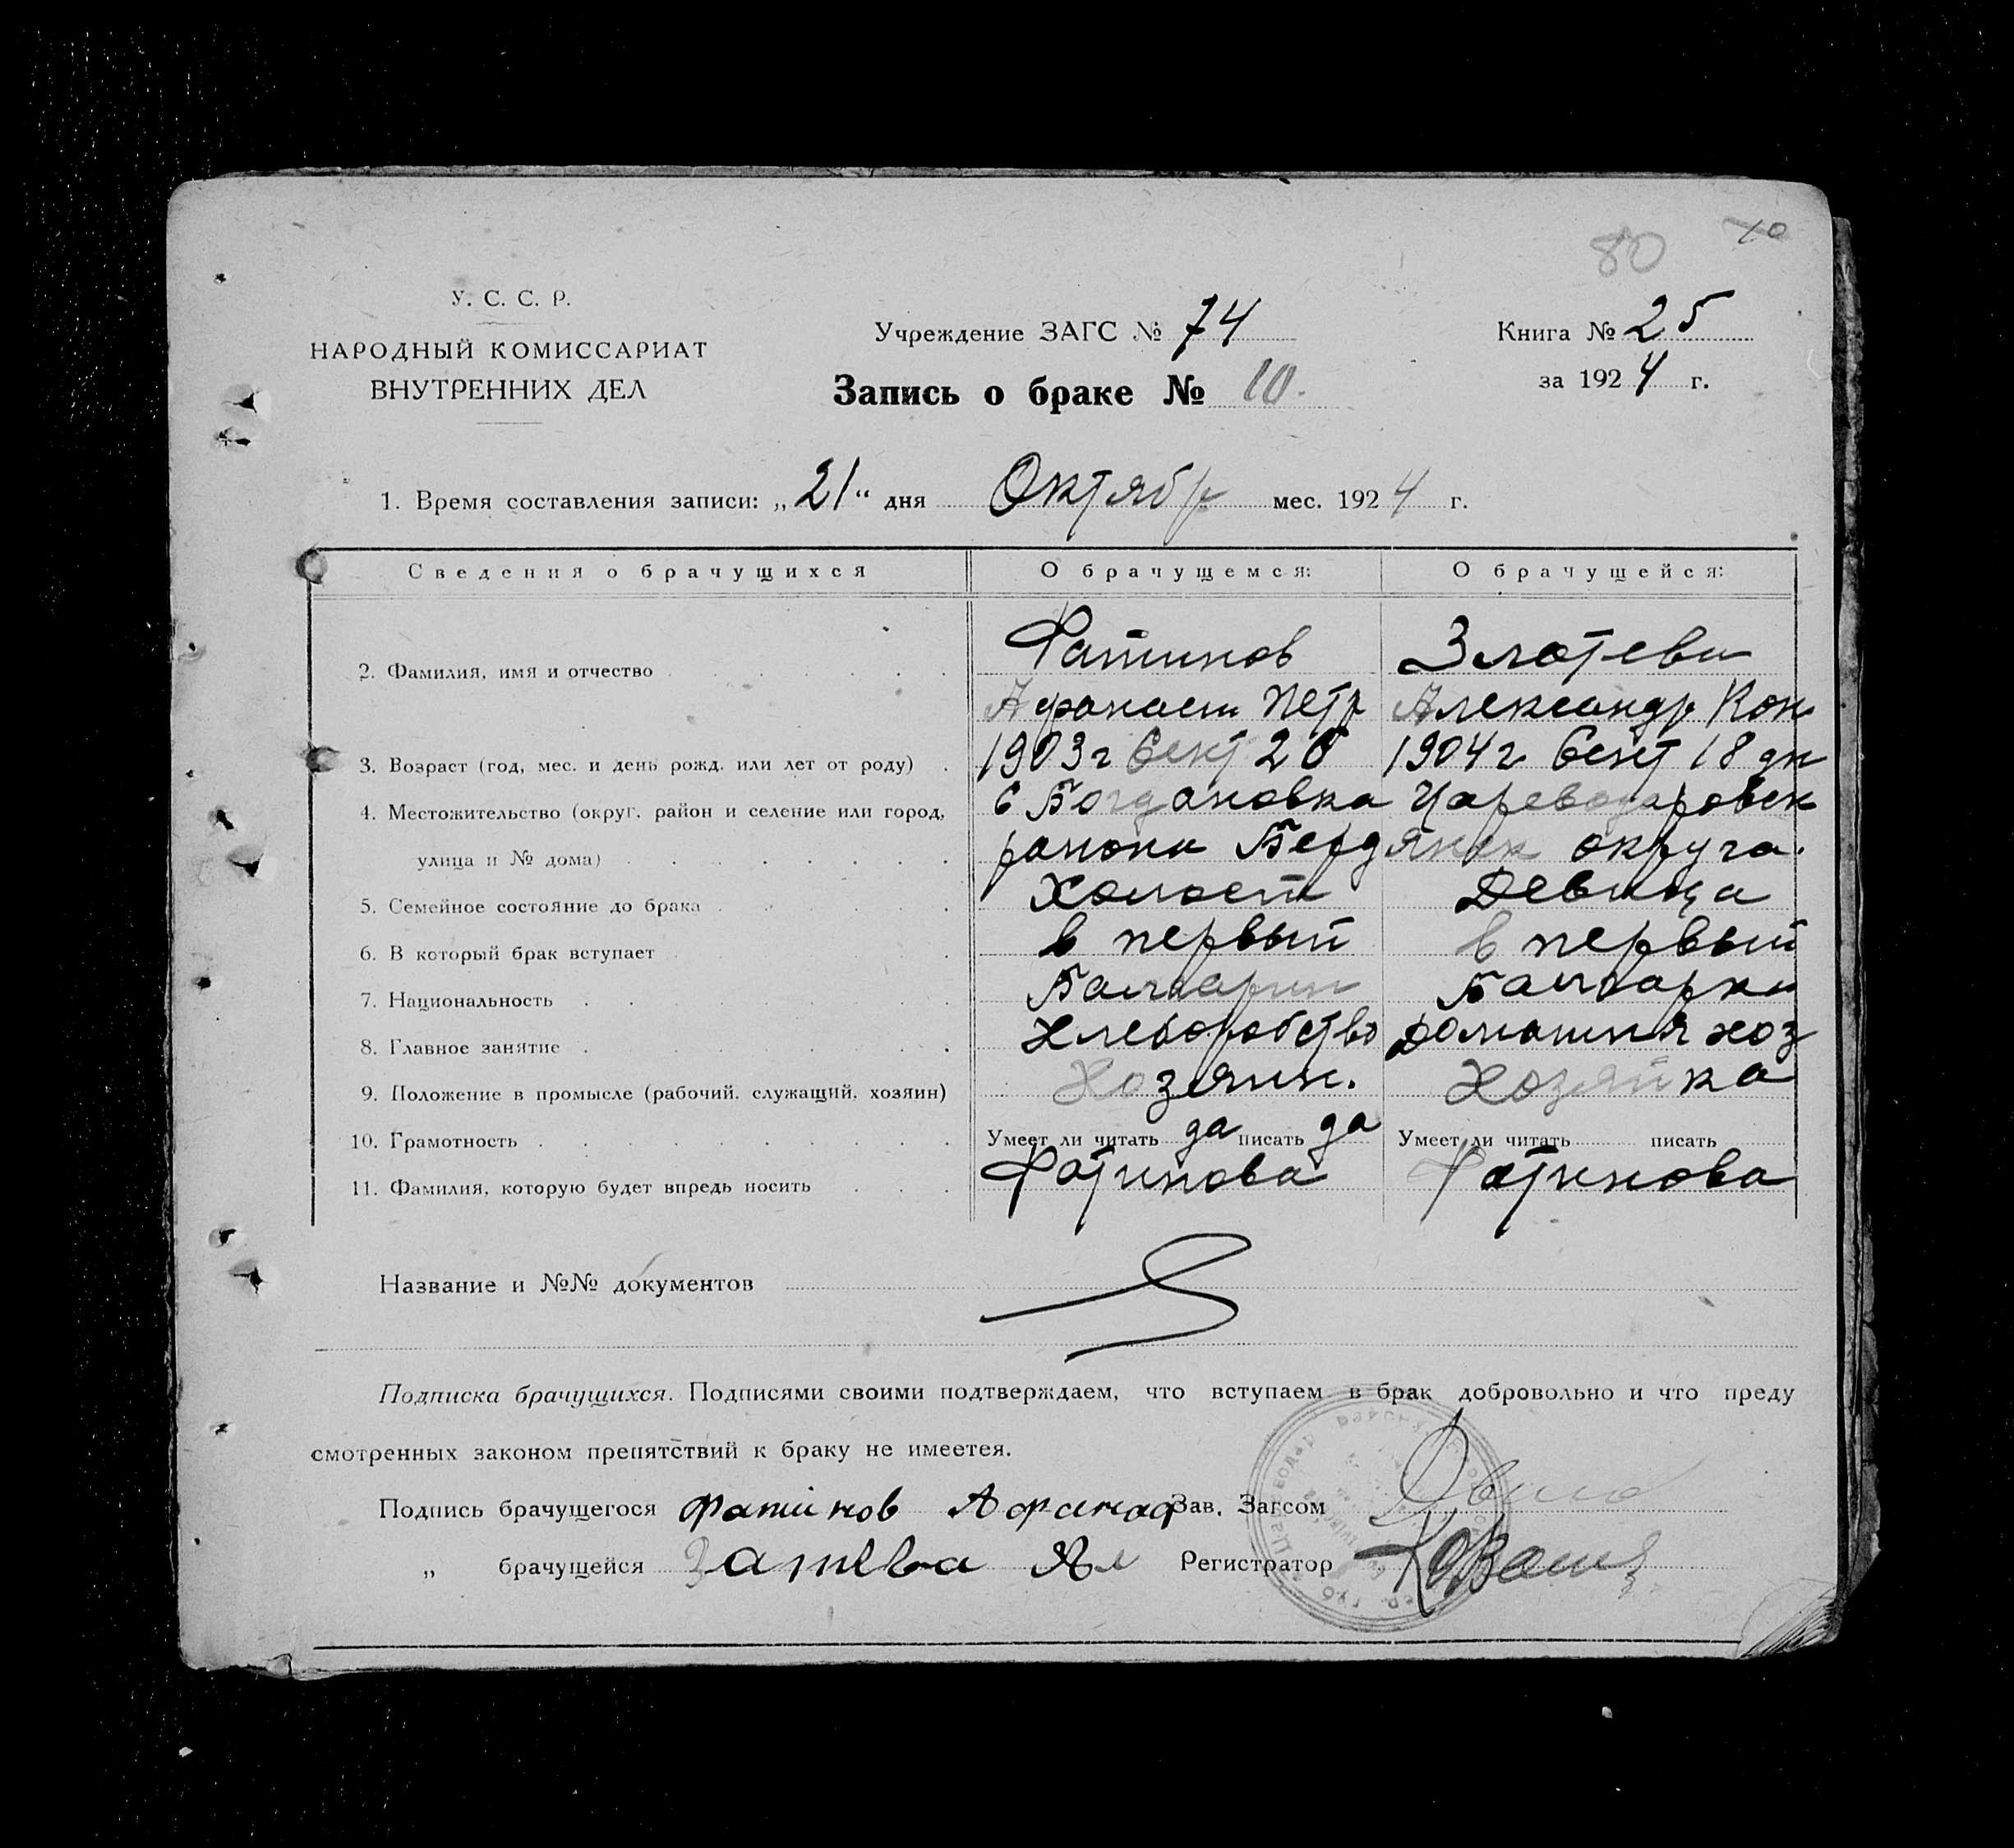 80 10
У. С. С. Р.
НАРОДНЫЙ КОМИССАРИАТ
ВНУТРЕННИХ ДЕЛ
Учреждение ЗАГС № 74
Запись о браке № 10.
Книга № 25
за 1924 г.
1. Время составления записи: „21“ дня Октябр мес. 1924 г.
Сведения о брачущихся О брачущемся: О брачущейся:
2. Фамилия, имя и отчество Фатинов Златева
Афанаси Петр Александр Кон
3. Возраст (год, мес. и день рожд. или лет от роду) 1903г Сент 20 1904г Сент 18 дн
4. Местожительство (округ. район и селение или город, С Богдановка Цареводаровск
улица и № дома) района Бердянск округа.
5. Семейное состояние до брака Холост Девица
6. В который брак вступает в первый в первый
7. Национальность Балгарин Балгарка
8. Главное занятие Хлеборобство Домашняя хоз
9. Положение в промысле (рабочий. служащий, хозяин) Хозяин. Хозяйка
10. Грамотность Умеет ли читать да писать да Умеет ли читать писать
11. Фамилия, которую будет впредь носить Фатинова Фатинова
Название и №№ документов
Подписка брачущихся. Подписями своими подтверждаем, что вступаем в брак добровольно и что преду
смотренных законом препятствий к браку не имеетея.
Подпись брачущегося Фатинов Афанас Зав. Загсом
„ брачущейся Затева Ал Регистратор